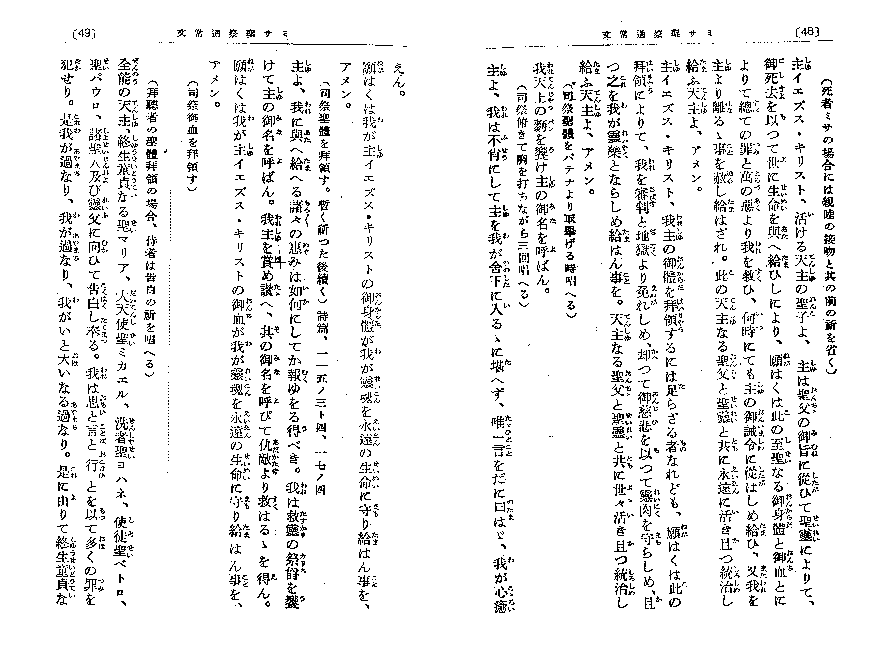 (48)
ミサ聖祭通常文
(死者ミサの場合には親睦の接吻と其の前の祈を省く)
主イエズス・キリスト、活ける天主の聖子よ、主は聖父の御旨に從ひて聖靈によりて、
御死去を以つて世に生命を與へ給ひしにより、願はくは此の至聖なる御身體と御血とに
よりて總ての罪と萬の惡より我を救ひ、何時にても主の御誡令に從はしめ給ひ、又我を
主より離るゝ事を赦し給はざれ。此の天主なる聖父と聖靈と共に永遠に活き且つ統治し
給ふ天主よ、アメン。
主イエズス・キリスト、我主の御體を拜領するには足らざる者なれども、願はくは此の
拜領によりて、我を審判と地獄より免れしめ、却つて御慈悲を以つて靈肉を守らしめ、且
つ之を我が靈藥とならしめ給はん事を。天主なる聖父と聖靈と共に世々活き且つ統治し
給ふ天主よ、アメン。
(司祭聖體をパテナより取擧げる時唱へる)
我天主の麪を受け主の御名を呼ばん。
(司祭俯きて胸を打ちながら三回唱へる)
主よ、我は不肖にして主を我が舍下に入るゝに堪へず、唯一言をだに曰はゞ、我が心癒
(49)
ミサ聖祭通常文
えん。
願はくは我が主イエズス・キリストの御身體が我が靈魂を永遠の生命に守り給はん事を、
アメン。
(司祭聖體を拜領す。暫く祈つた後續く)詩篇、一一五ノ三ー四、一七ノ四
主よ、我に與へ給へる諸々の惠みは如何にしてか報ゆるを得べき。我は救靈の祭爵を受
けて主の御名を呼ばん。我主を賞め讃へ、其の御名を呼びて仇敵より救はるゝを得ん。
願はくは我が主イエズス・キリストの御血が我が靈魂を永遠の生命に守り給はん事を、
アメン。
(司祭御血を拜領す)
(拜聽者の聖體拜領の場合、侍者は告白の祈を唱へる)
全能の天主、終生童貞なる聖マリア、大天使聖ミカエル、洗者聖ヨハネ、使徒聖ペトロ、
聖パウロ、諸聖人及び靈父に向ひて告白し奉る。我は思と言と行とを以て多くの罪を
犯せり。是我が過なり、我が過なり、我がいと大いなる過なり。是に由りて終生童貞な